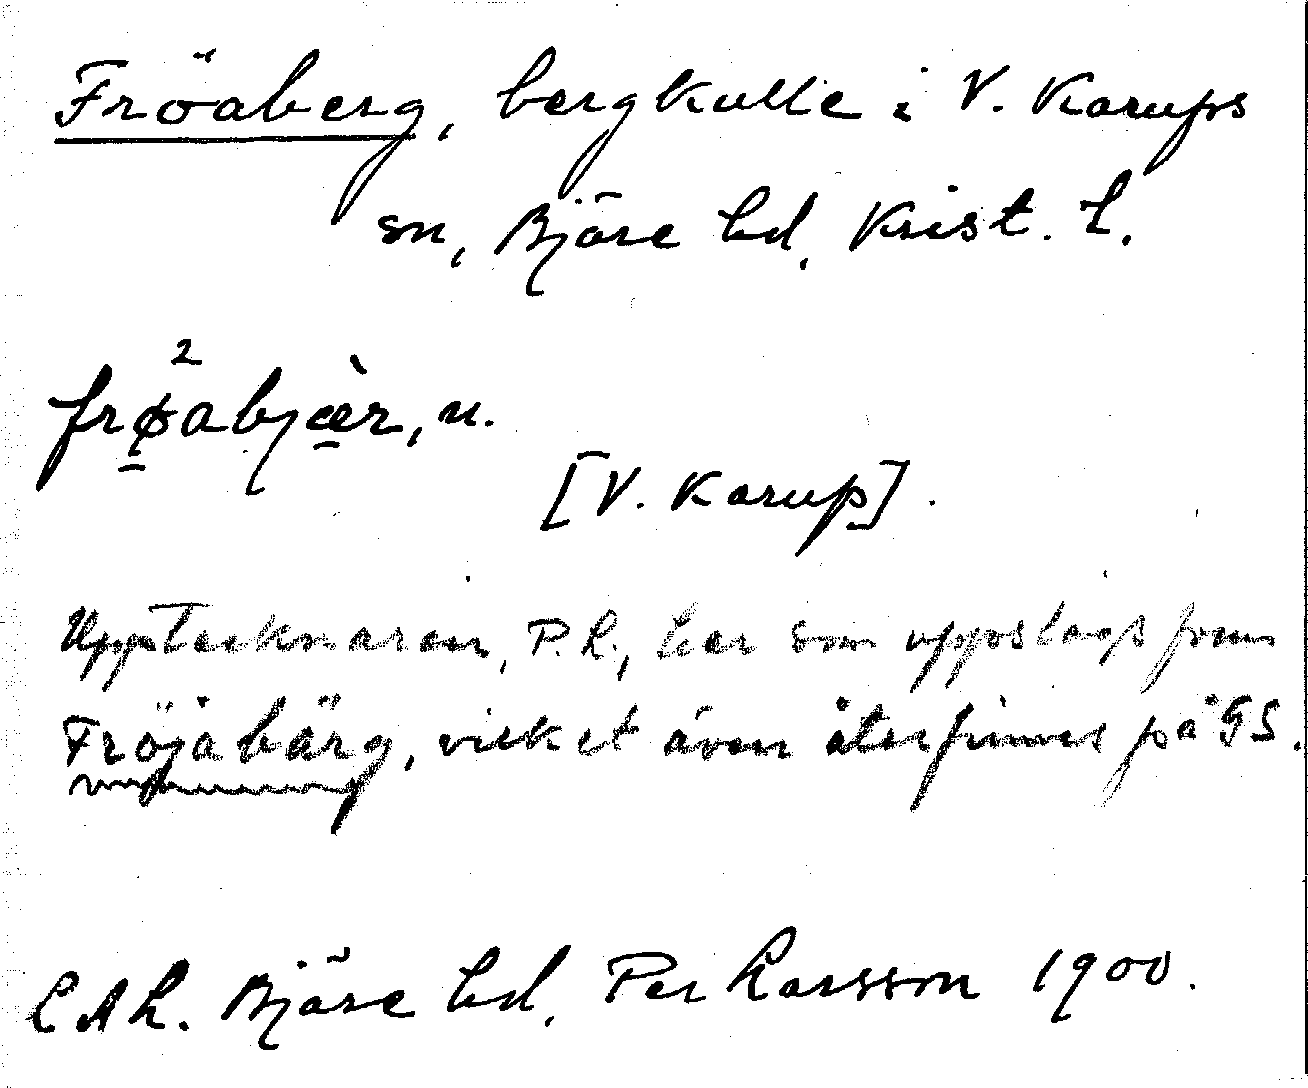 Fröaberg, bergkulle i V. Karups
sn, Bjäre hd, Krist. L.
2
frø̱abjæ̱̀r, n.
[V. Karup].
Upptecknaren, P.L., har som uppslagsform
Fröjabärg, vilket även återfinnes på GS.
LAL. Bjäre hd, Per Larsson 1900.